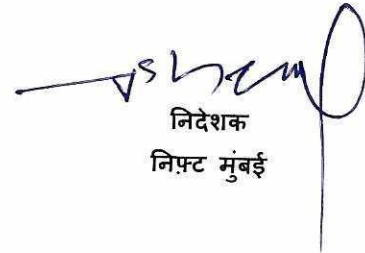 निदेशक
निफ़्ट मुंबई